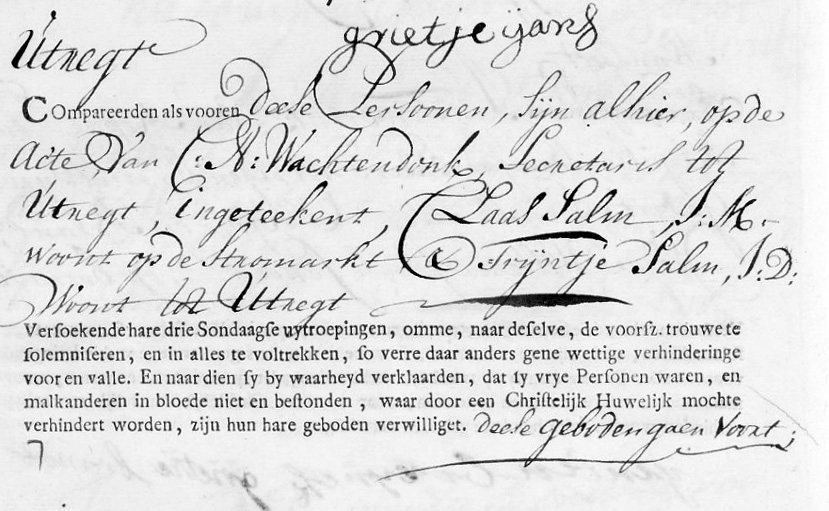 grietje ijans
Utregt
COmpareerden als vooren Deese Persoonen, sijn alhier, op de
Acte Van C: A: Wachtendonk, Secretaris tot
Utregt, Ingeteekent, Claas Salm, J: M.
woont op de Stromarkt & Trijntje Salm, J: D:
Woont tot Utregt
Versoekende hare drie Sondaagse uytroepingen, omme, naar deselve, de voorsz. trouwe te
solemniseren, en in alles te voltrekken, so verre daar anders gene wettige verhinderinge
voor en valle. En naar dien sy by waarheyd verklaarden, dat sy vrye Personen waren, en
malkanderen in bloede niet en bestonden, waar door een Christelijk Huwelijk mochte
verhindert worden, zijn hun hare geboden verwilliget. deese geboden gaen Voort;